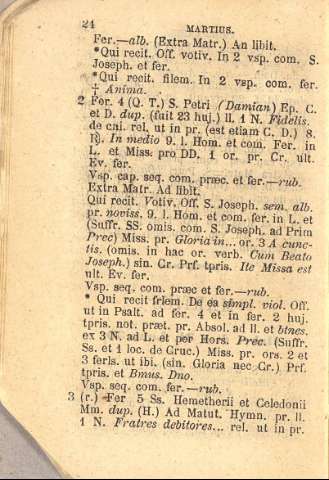 24 MARTIUS.
Fer.—alb. (Extra Matr.) An libit.
*Qui recit. Off. votiv. In 2 vsp. com. S.
Joseph. et fer.
*Qui recit. filem. In 2 vsp. com. fer.
‡ Anima.
2 Fer. 4 (Q. T.) S. Petri (Damian) Ep. C.
et D. dup. (fuit 23 huj.) ll. 1 N. Fidelis.
de cni. rel. ut in pr. (est etiam C. D.) 8.
℟. In medio 9. l. Hom. et com. Fer. in
L. et Miss. pro DD. 1 or. pr. Cr. ult.
Ev. fer.
Vsp. cap. seq. com. præc. et fer.—rub.
Extra Matr. Ad libit.
Qui recit. Votiv. Off. S. Joseph. sem. alb.
pr. noviss. 9. l. Hom. et com. fer. in L. et
(Suffr. SS. omis. com. S. Joseph. ad Prim
Prec) Miss. pr. Gloria in... or. 3 A cunc-
tis. (omis. in hac or. verb. Cum Beato
Joseph.) sin. Cr. Prf. tpris. Ite Missa est
ult. Ev. fer.
Vsp. seq. com. præc et fer.—rub.
* Qui recit frlem. De ea simpl. viol. Off.
ut in Psalt. ad fer. 4 et in fer. 2 huj.
tpris. not. præt. pr. Absol. ad ll. et btnes.
ex 3 N. ad L. et per Hors. Prec. (Suffr.
Ss. et 1 loc. de Cruc.) Miss. pr. ors. 2 et
3 ferls. ut ibi. (sin. Gloria nec Cr.) Prf.
tpris. et Bmus. Dno.
Vsp. seq. com. fer.—rub.
3 (r.) Fer 5 Ss. Hemetherii et Celedonii
Mm. dup. (H.) Ad Matut. Hymn. pr. ll.
1 N. Fratres debitores... rel. ut in pr.